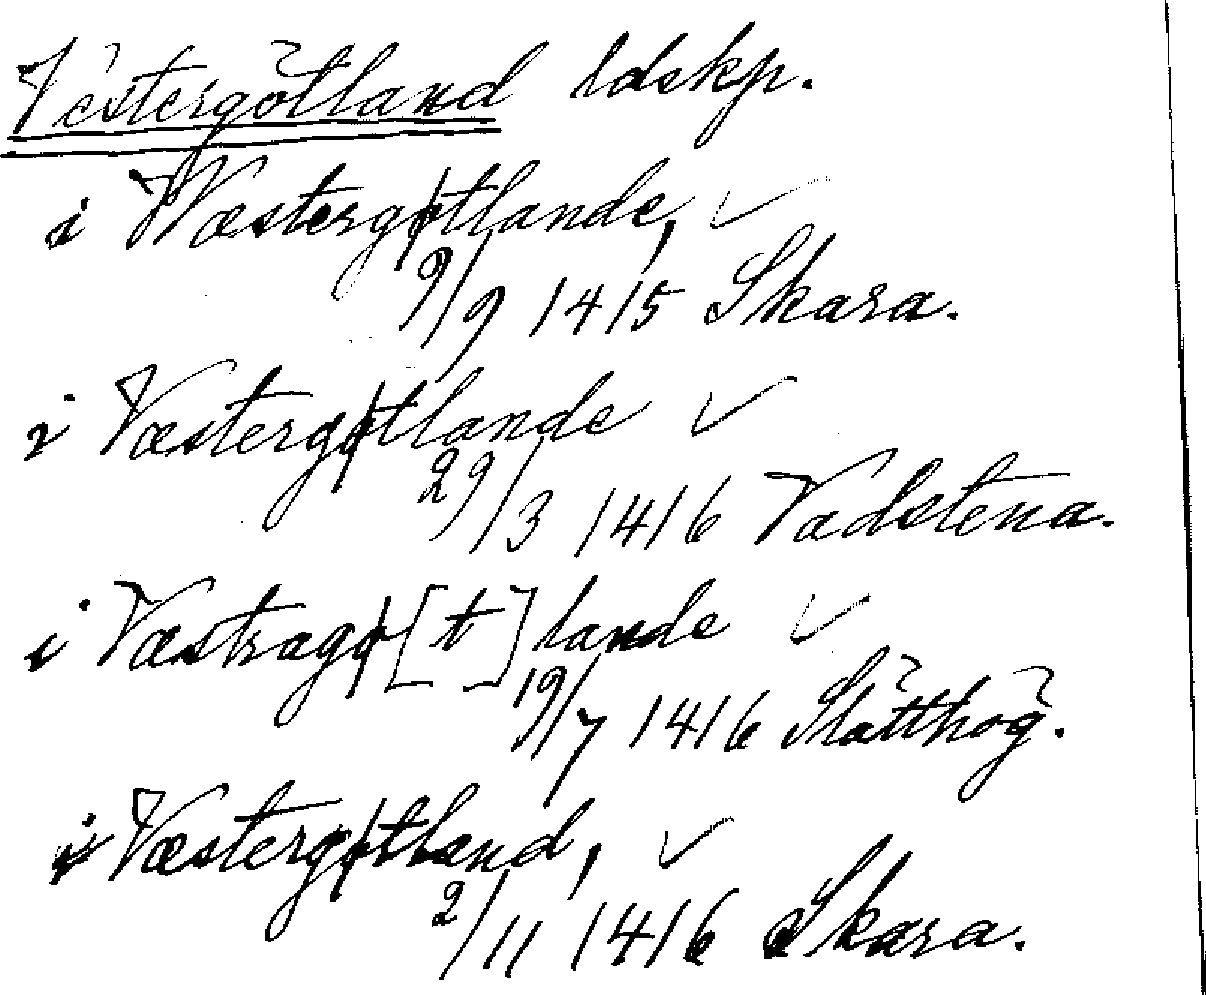 Västergötland ldskp.
i Wæstergøtlande, ✓
9/9 1415 Skara.
i Væstergøtlande ✓
29/3 1416 Vadstena.
i Væstragø[t]lande ✓
19/7 1416 Slätthög.
i Væstergøtland, ✓
2/11 1416 Skara.